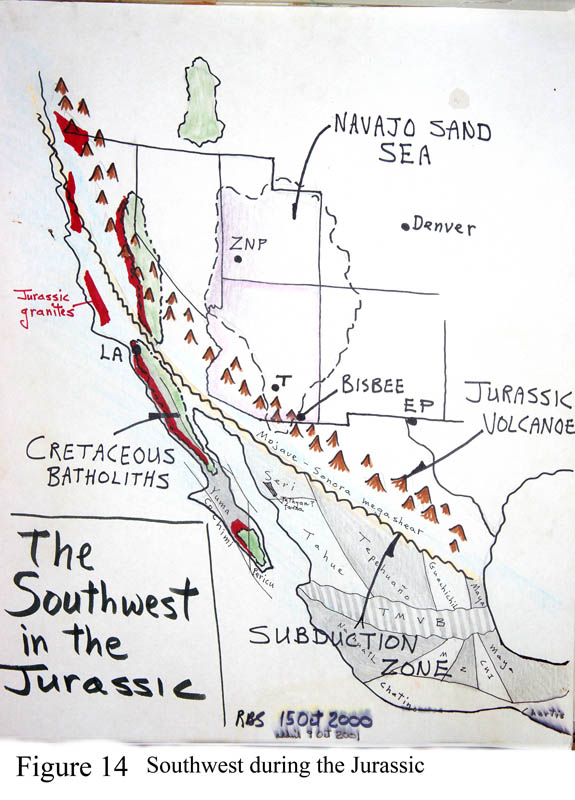 NAVAJO SAND
SEA
Denver
ZNP
Jurassic
granites
LA
T
BISBEE
EP
JURASSIC
VOLCANOE
CRETACEOUS
BATHOLITHS
Mojave - Sonora megashear
Seri
Yuma
Cochimi
Pericu
Tahue
Tepehuano
Guachichil
Maya
TMVB
SUBDUCTION
ZONE
maya
Chatin
Chortis
The
Southwest
in the
Jurassic
RBS 15 Oct 2000
Figure 14 Southwest during the Jurassic